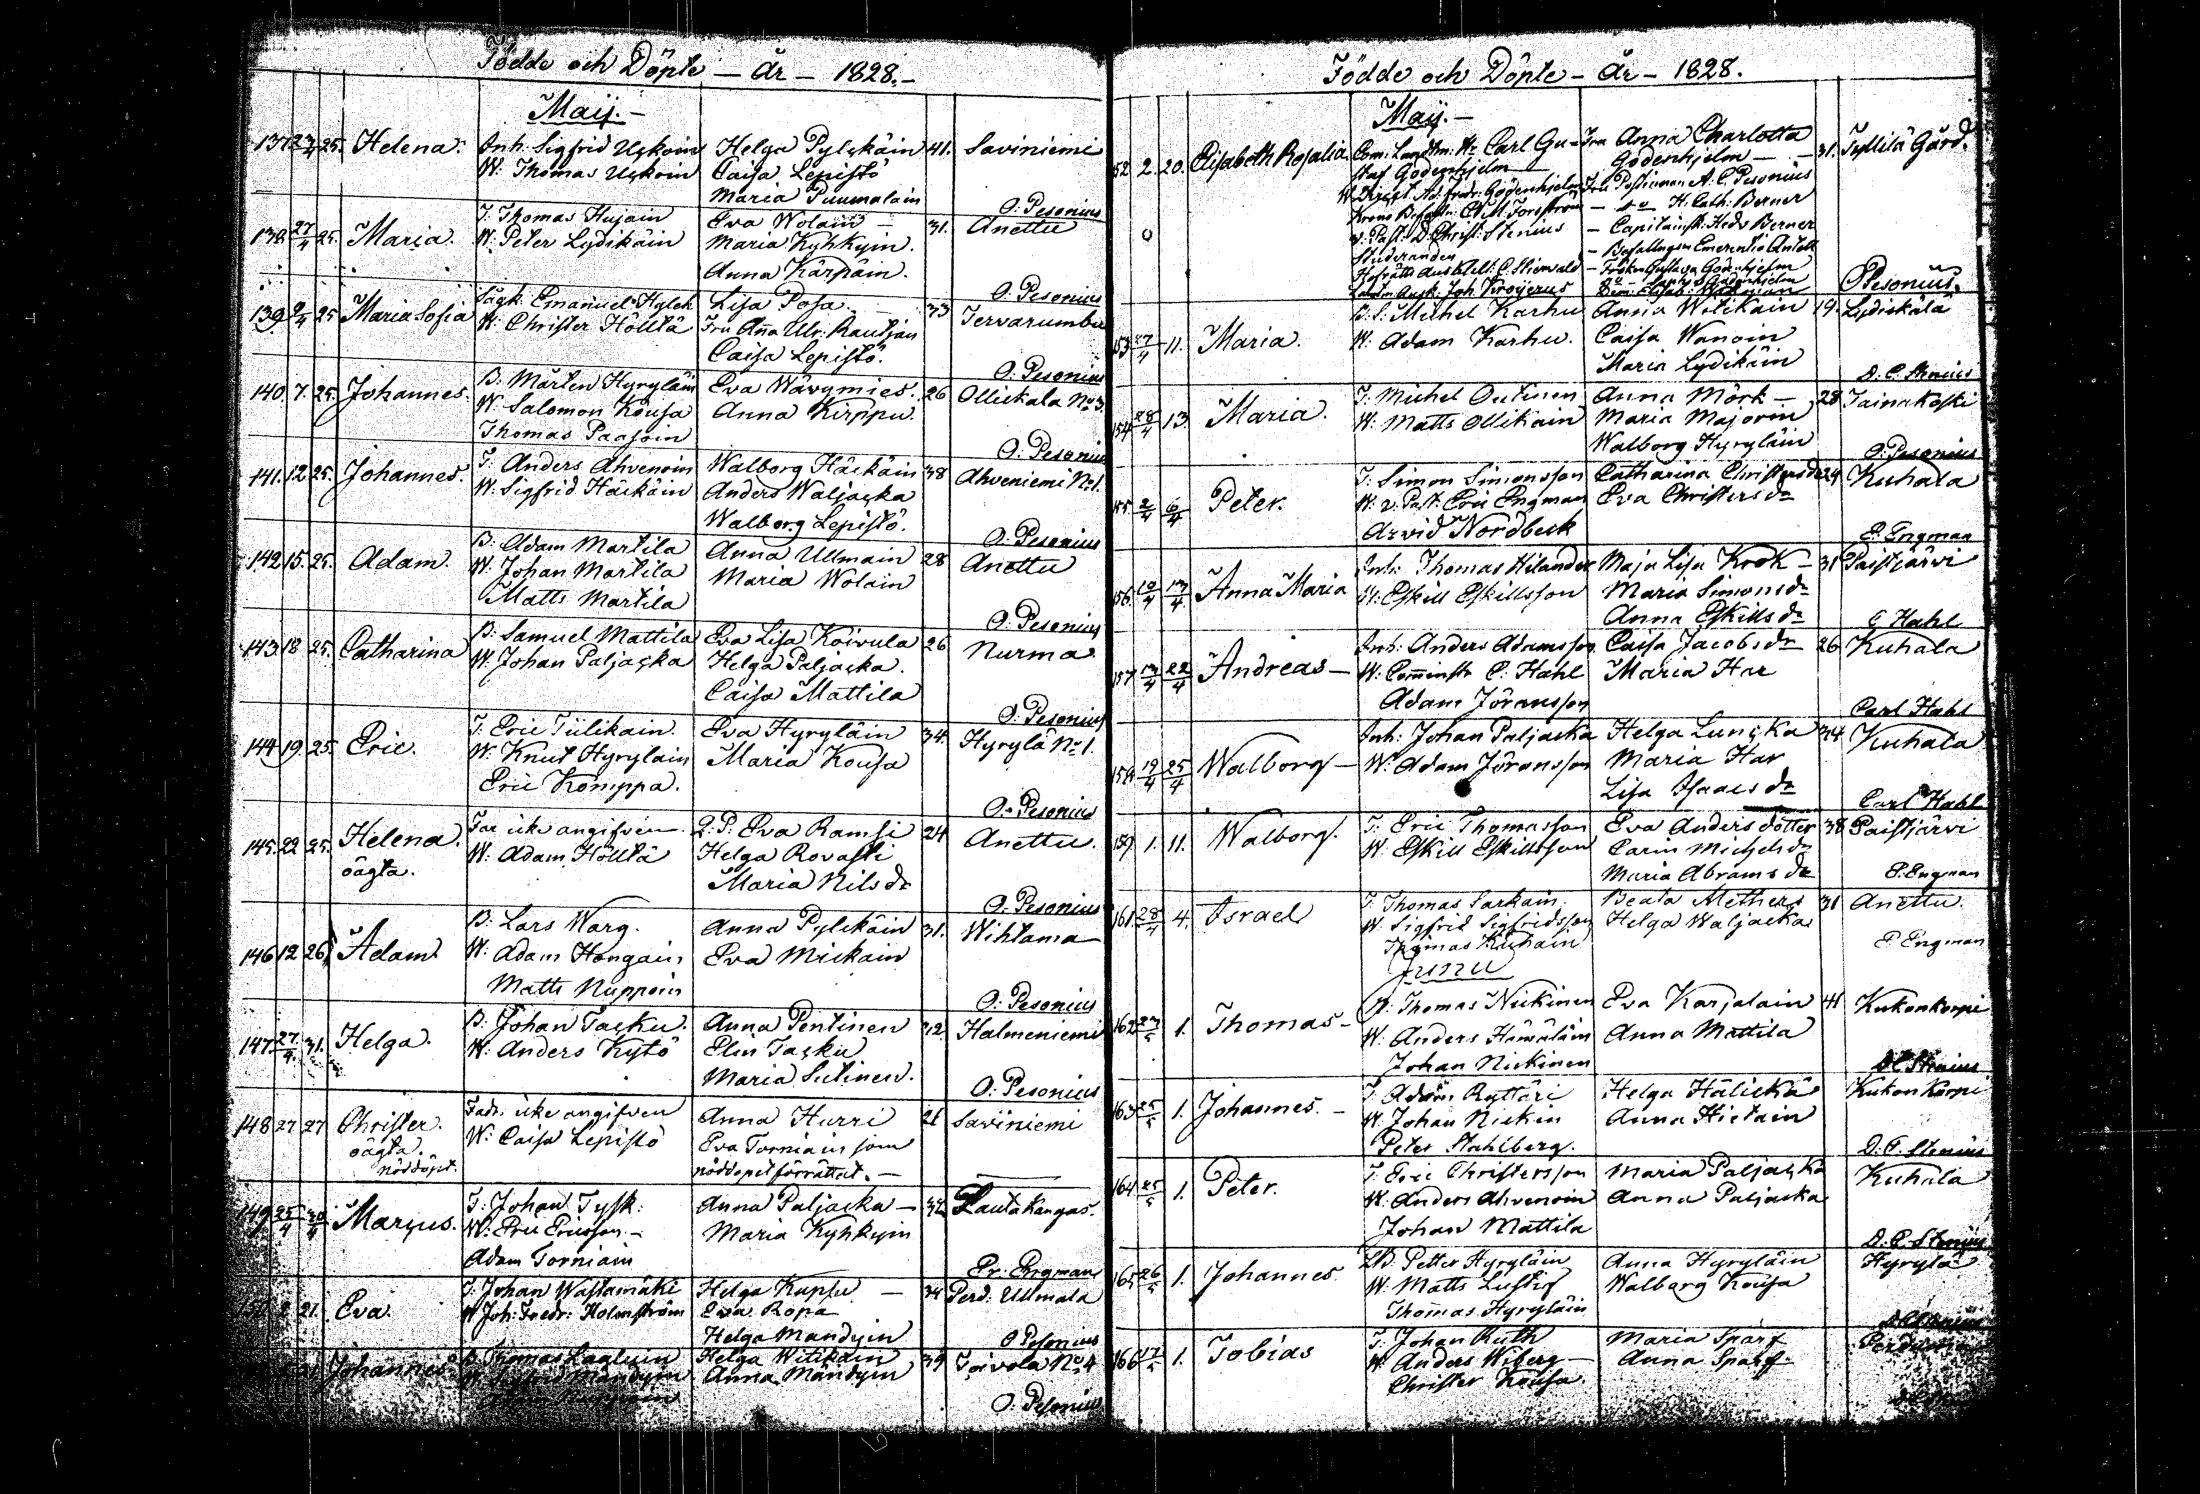 Födde och Döpte – År – 1828.–
Maij.–
137 23/4 25. Helena. Inh. Sigfrid Uskoin Helga Pylckäin 41. Saviniemi
W. Thomas Uskoin Caisa Lepistö
Maria Puumalain O. Pesonius
138. 27/4 25. Maria. T. Thomas Hujain Eva Wolain – 31. Anettu
W. Peter Lydikäin Maria Kyhkyin.
Anna Kärpäin. O. Pesonius
139 2/4 25 Maria Sofia Emanuel Lisa Posa. – 33 Jervarumbu
W. Christer Hölttä Fru Anna Ulr. Rautjan
Caisa Lepistö. O. Pesonius
140. 7. 25. Johannes. B. Mårten Hyryläin Eva Wärymies. 26 Ollickala No 3.
W. Salomon Kousa Anna Kirppu.
Thomas Paasoin O. Pesonius
141. 12. 25. Johannes. T. Anders Ahvenoin Walborg Häckäin 38 Ahveniemi No 1.
W. Sigfrid Häckäin Anders Waljacka
Walborg Lepistö. O. Pesonius
142 15. 25. Adam. B. Adam Martila Anna Ullmain 28 Anettu
W. Johan Martila Maria Wolain
Matts Martila O. Pesonius
143. 18. 25. Catharina B. Samuel Mattila Eva Lisa Koivula 26 Nurma
W. Johan Paljacka Helga Paljacka.
Caisa Mattila O. Pesonius
144 19. 25. Eric. T. Eric Tiilikain. Eva Hyryläin 34. Hyrylä No 1.
W. Knut Hyryläin Maria Kousa
Eric Komppa. O. Pesonius
145. 22 25. Helena. Far icke angifven. Q. P. Eva Ramsi 24 Anettu.
oägta. W. Adam Hölttä Helga Rovasti
Maria Nils dr O. Pesonius
146 12 26. Adam B. Lars Warg. Anna Pylckäin 31. Wihtama
W. Adam Hongain Eva Mickain
Matts Nuppoin O. Pesonius
147 27/4 31. Helga. B. Johan Tasku. Anna Pentinen 32. Halmeniemi
W. Anders Kytö Elin Tasku
Maria Sutinen. O. Pesonius
148 27 27 Christer. Fadr. icke angifven Anna Hurri 21 Saviniemi
oägta. W. Caisa Lepistö Eva Torniain som
nöddöpt. nöddopet förrättat. –
149 25/4 30/4 Marcus. T. Johan Tysk. Anna Paljacka – 32 Lautakangas.
W. Eric Ericsson – Maria Kyhkyin
Adam Torniain Er. Engman
21. Eva. T. Johan Wastamäki Helga Kuppu – 34 Perd. Ullmala
W. Joh. Fredr. Holmström Eva Ropa
Helga Mandyin O Pesonius
Johannes B. Thomas Helga Witikain 39 Toivola No 4
Mandyin Anna Mandyin
O. Pesonius
Födde och Döpte – År – 1828.
Maij.–
152 2. 20. Elisabeth Rosalia. Com. Landtm. Hr Carl Gu- Fru Anna Charlotta 31. Tyllilä Gård.
staf Godenhjelm – Godenhjelm –
Godenhjelm Fru Postinnan A. C. Pesonius
– H. Cath. Berner
v. Past. D. Christ. Stenius – Capitainsk. Hedv Berner
Studeranden – Emerentia Antell
– Fröken Gustava Godenhjelm
Joh. O Pesonius.
153 27/4 11. Maria. Michel Karhu Anna Witikain 19. Lydickälä
W. Adam Karhu. Caisa Wanoin
Maria Lydikäin D. C. Stenius
154 28/4 13. Maria. T. Michel Outinen Anna Mörk – 28 Jainakoski
W. Matts Ollikain Maria Majorin
Walborg Hyryläin O. Pesonius
155 2/4 6/4 Peter. T. Simon Simonsson Catharina Christers dr 24 Kuhala
W. v. Past. Eric Engman Eva Christers dr
Arvid Nordbeck E. Engman
156 10/4 13/4 Anna Maria Inh. Thomas Hilander Maja Lisa Krok – 31 Paistjärvi
W. Eskill Eskillsson Maria Simons dr
Anna Eskills dr C Hahl
157 13/4 22/4 Andreas – Inh. Anders Adamsson Caisa Jacobs dr 26 Kuhala
W. Comministr C. Hahl Maria Har
Adam Jöransson Carl Hahl
158 19/4 25/4 Walborg – Inh. Johan Paljacka Helga Luncka 34 Kuhala
W. Adam Jöransson Maria Har
Lisa Isaacs dr Carl Hahl
159 1. 11. Walborg. T. Eric Thomasson Eva Andersdotter 38 Paistjärvi
W. Eskill Eskillsson Carin Michels dr
Maria Abrams dr E. Engman
161 28/4 4. Israel T. Thomas Sarkain Beata Methers 31 Anettu.
W. Sigfrid Sigfridsson Helga Waljacka
Thomas Kuhain E Engman
Junii
162 23/5 1. Thomas – B. Thomas Nickinen Eva Karjalain 41 Kukonkorpi
W. Anders Hämäläin Anna Mattila
Johan Nickinen D C Stenius
163 25/5 1. Johannes. – T. Adam Ryttäri Helga Hälickä Kukonkorpi
W. Johan Nickin Anna Hietain
Peter Stahlberg. D. C. Stenius
164 25/5 1. Peter. T. Eric Christersson Maria Paljacka Kuhala
W. Anders Ahvenoin Anna Paljacka
Johan Mattila D. C. Stenius
165 26/5 1. Johannes Petter Hyryläin Anna Hyryläin Hyrylä
W. Matts Lustig Walborg Kousa
Thomas Hyryläin
166 1. Tobias T. Johan Ruth Maria Sparf
W. Anders Wiberg – Anna Sparf.
Christer Kousa.